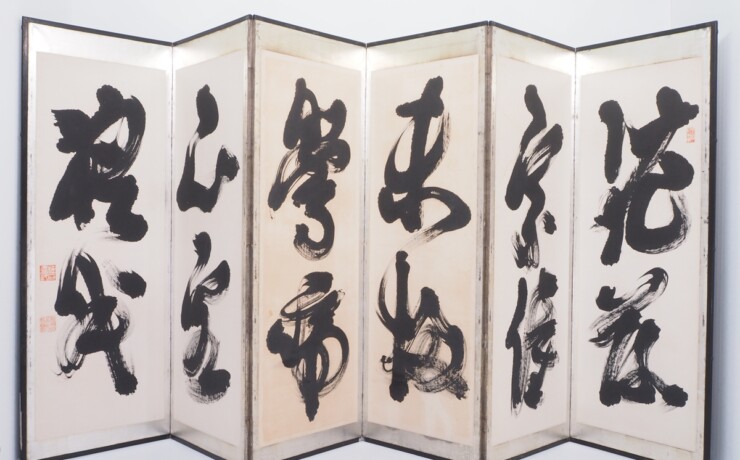 花落
家僮
未掃
鶯啼
山客
猶眠